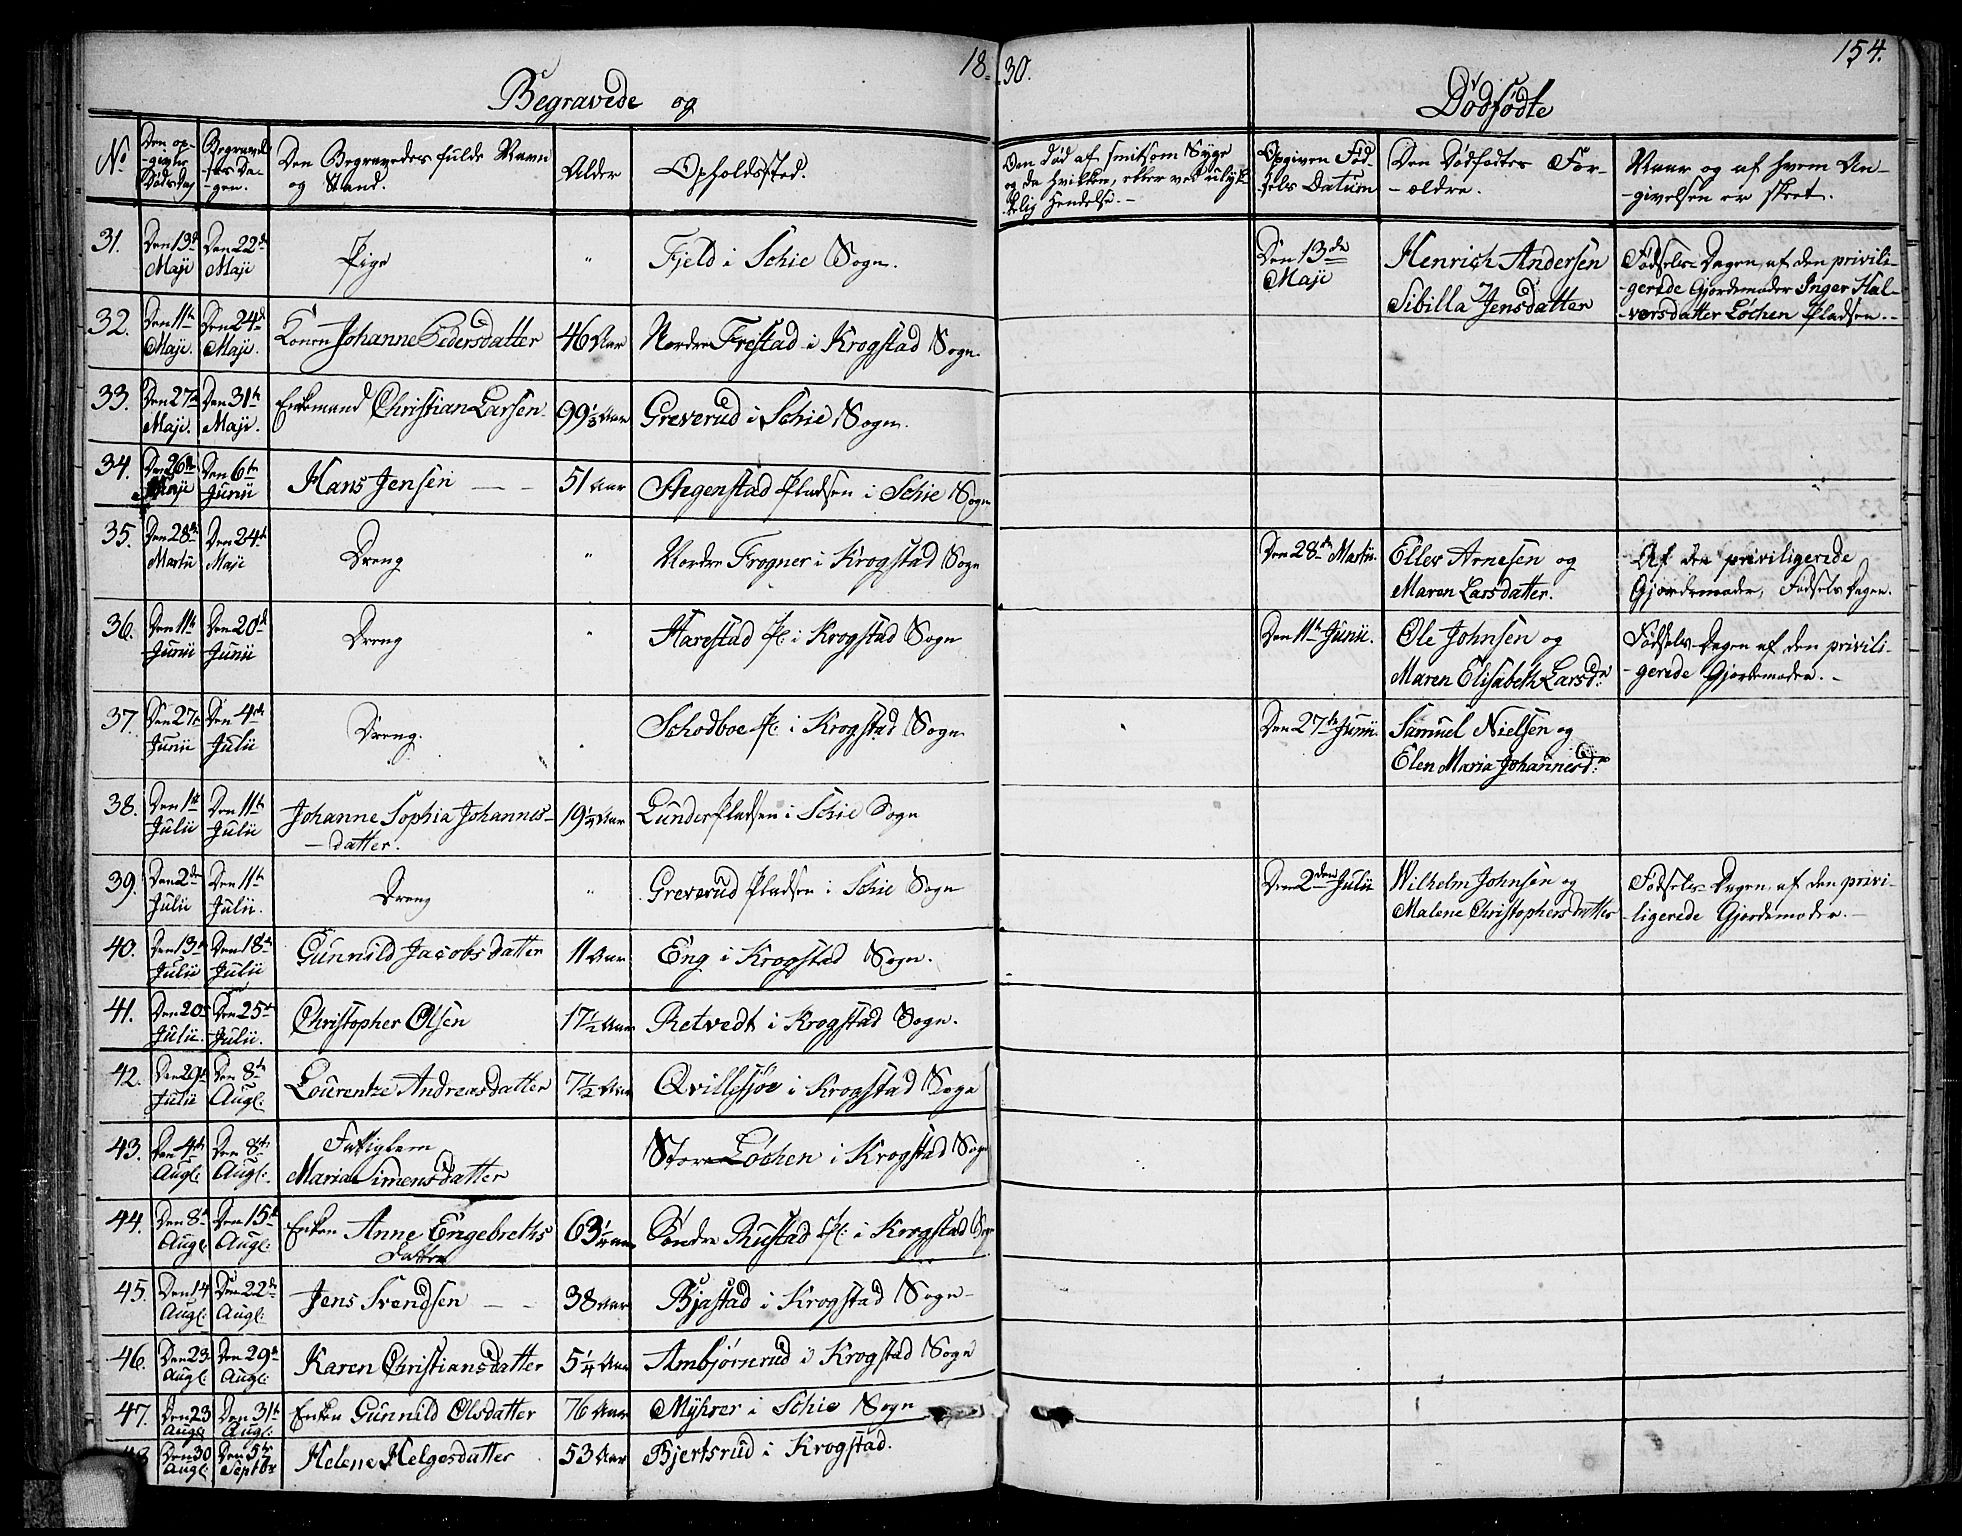 18 30.
154.
Begravede og Dødfødte
No
Den op-
-givne
Dødsdag
Begravel
ses Da-
-gen.
Den Begravedes fulde Navn
og Stand.
Alder
Opholdssted.
Den død af smitsom Syge
og da hvilken, eller ved ulyk-
kelig Hendelse.-
Opgiven Fød-
sels Datum
Den Dødfødtes For-
-ældre.
Naar og af hvem An-
-givelsen er skeet.
31. Den 13de Maji Den 22de Maji Pige " Fjeld i Schie Sogn. Den 13de Maji Henrich Andersen
Sibilla Jensdatter
Fødsels-Dagen, af den privili-
-gerede Gjordemoder Inger Hal-
-vorsdatter Løchen Pladsen.-
32. Den 11te Maji. Den 24de Maji. Konen Johanne Pedersdatter 46 Aar Nordre Frestad i Krogstad Sogn
33. Den 27de Maji. Den 31te Maji. Enkemand Christian Larsen 99 1/3 Aar Greverud i Schie Sogn.
34. Den 26de Maji Den 6te Junii Hans Jensen 51 Aar Stegenstad Pladsen i Schie Sogn
35. Den 28de Martii Den 24de Maji Dreng " Nordre Frogner i Krogstad Sogn Den 28de Martii. Eller Arnesen og
Maren Larsdatter.
Af den priviligerede
Gjordemoder, Fødsels Dagen.
36. Den 11te Junii Den 20de Junii Dreng " Harestad Pl. i Krogstad Sogn Den 11te Junii. Ole Johnsen og
Maren Elisabeth Larsdr:
Fødsels-Dagen af den privili-
-gerede Gjordemoder.-
37. Den 27de Junii Den 4de Julii Dreng. Schodboe Pl. i Krogstad Sogn Den 27de Junii. Samuel Nielsen og
Elen Maria Johannesdr:
38. Den 1ste Julii Den 11te Julii Johanne Sophia Johannes-
-datter. 19 1/4 Aar Lunder Pladsen i Schie Sogn
39. Den 2den Julii Den 11te Julii. Dreng " Greverud Pladsen i Schie Sogn Den 2den Julii Wilhelm Johnsen og
Malene Christophersdatter
Fødsels-Dagen af den privi-
-ligerede Gjordemoder.-
40. Den 13de Julii Den 18de Julii Gunnild Jacobsdatter 11 Aar Eng i Krogstad Sogn.
41. Den 20de Julii. Den 25de Julii. Christopher Olsen 17 1/2 Aar Retvedt i Krogstad Sogn.
42. Den 29de Julii Den 8de Augl: Lourentze Andreasdatter 7 1/2 Aar Qvillesjøe i Krogstad Sogn
43. Den 4de Augl: Den 8de Augl: Fattiglem
Maria Simensdatter Store Løchen i Krogstad Sogn
44. Den 8de Augl: Den 15de Augl: Enken Anne Engebreths
datter 63 1/4 Aar Søndre Rustad Pl: i Krogstad Sogn
45. Den 14 Augl: Den 22de Augl: Jens Svendsen 38 Aar Bjastad i Krogstad Sogn-
46. Den 23 Augl: Den 29de Augl: Karen Christiansdatter 5 1/4 Aar Ambjørnrud i Krogstad Sogn
47. Den 23 Augl: Den 31te Augl: Enken Gunnild Olsdatter 76 Aar Myhrer i Schie Sogn
48 Den 30 Augl: Den 5te Septbr Helene Helgesdatter 53 Aar Bjertsrud i Krogstad.